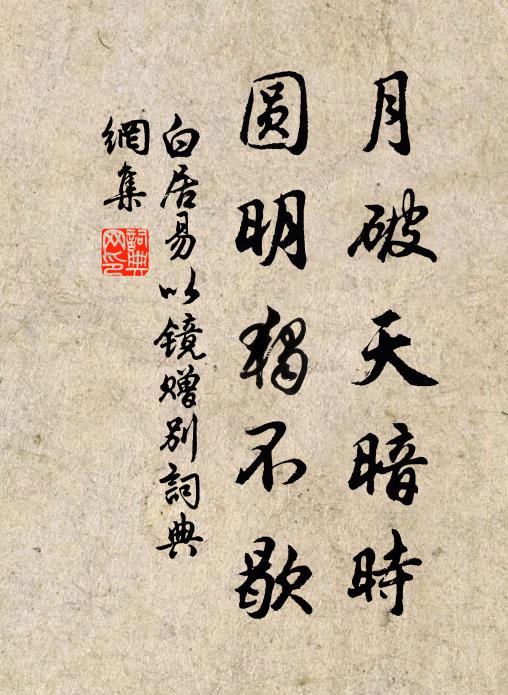 月破天暗時
圆明獨不歇
白居易以镜赠别詞典
網集
詞典
网印